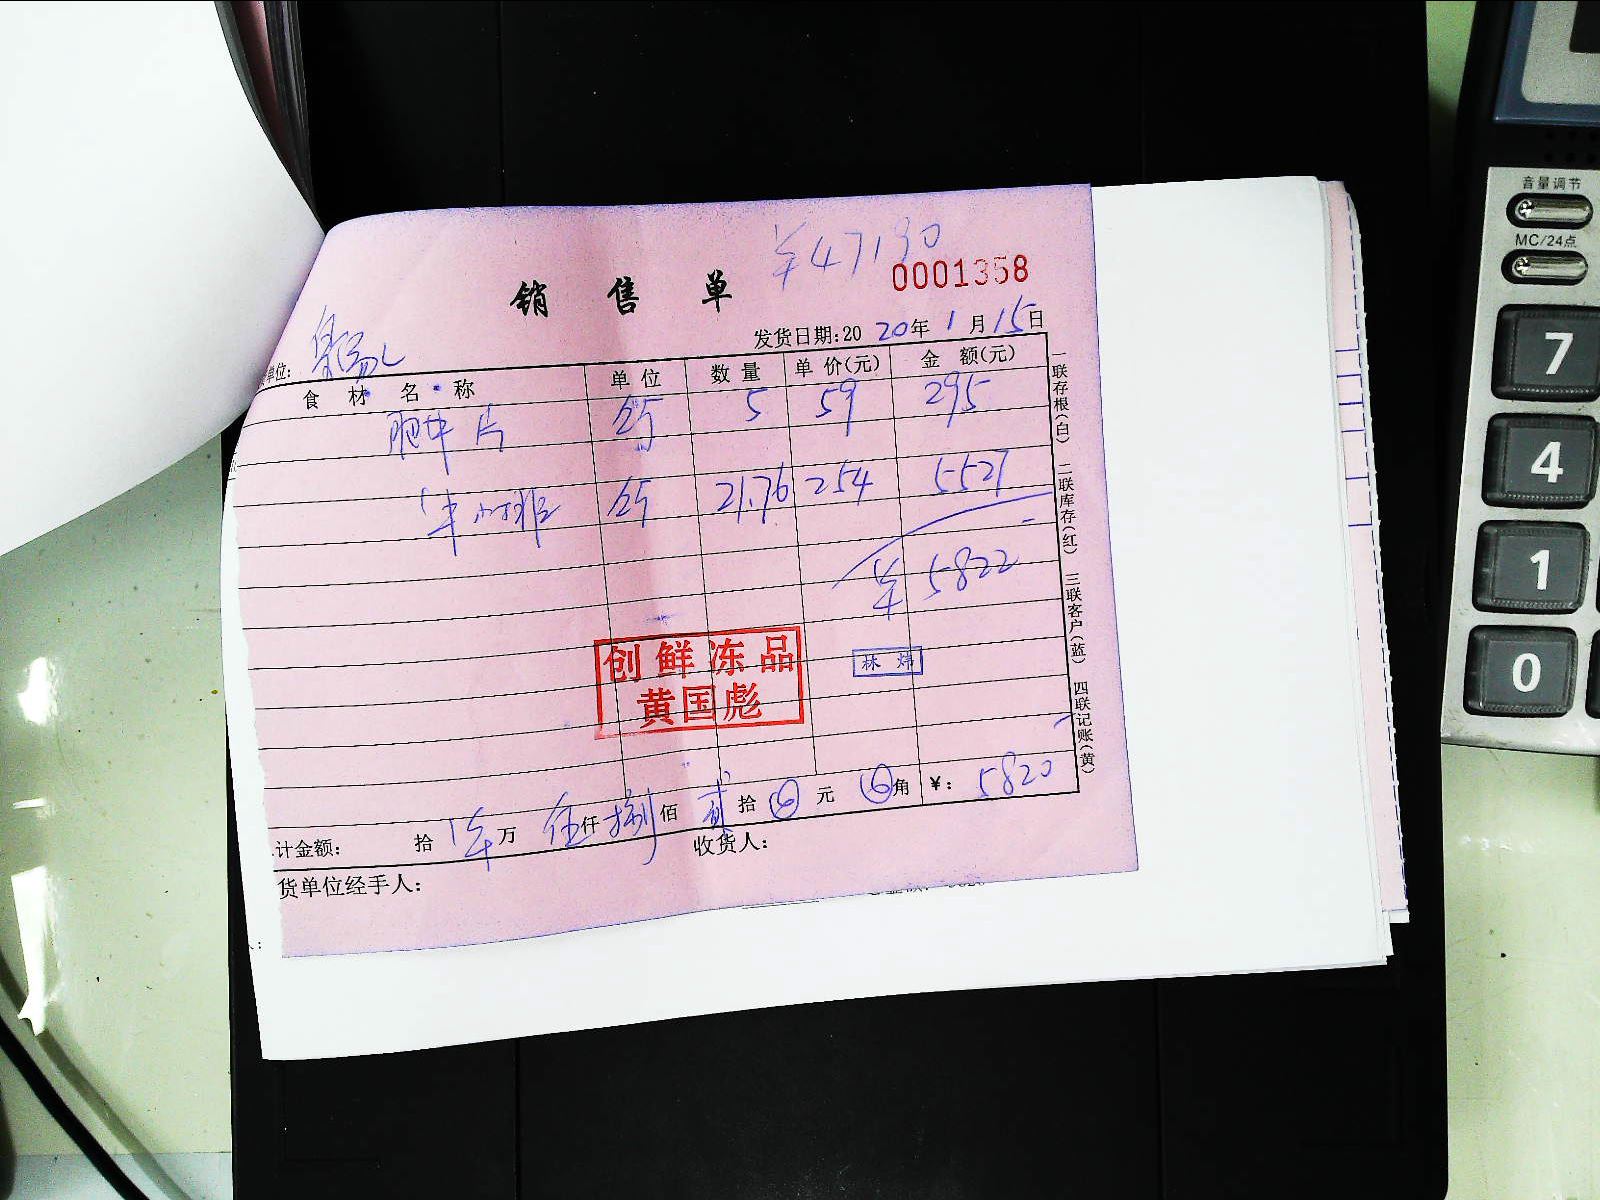 ¥47190
0001358
销售单
发货日期:20 20年 1月 15日
单位:
食材名称 单位 数量 单价(元) 金额(元)
肥牛片 斤 5 59 295
牛小排 斤 21.76 254 5527
¥ 5822
创鲜冻品
黄国彪
林炜
计金额: 拾 万 伍仟 捌佰 贰拾 元 角 ¥: 5820
货单位经手人: 收货人:
一联存根(白) 二联库存(红) 三联客户(蓝) 四联记账(黄)
音量调节
MC/24点
7
4
1
0